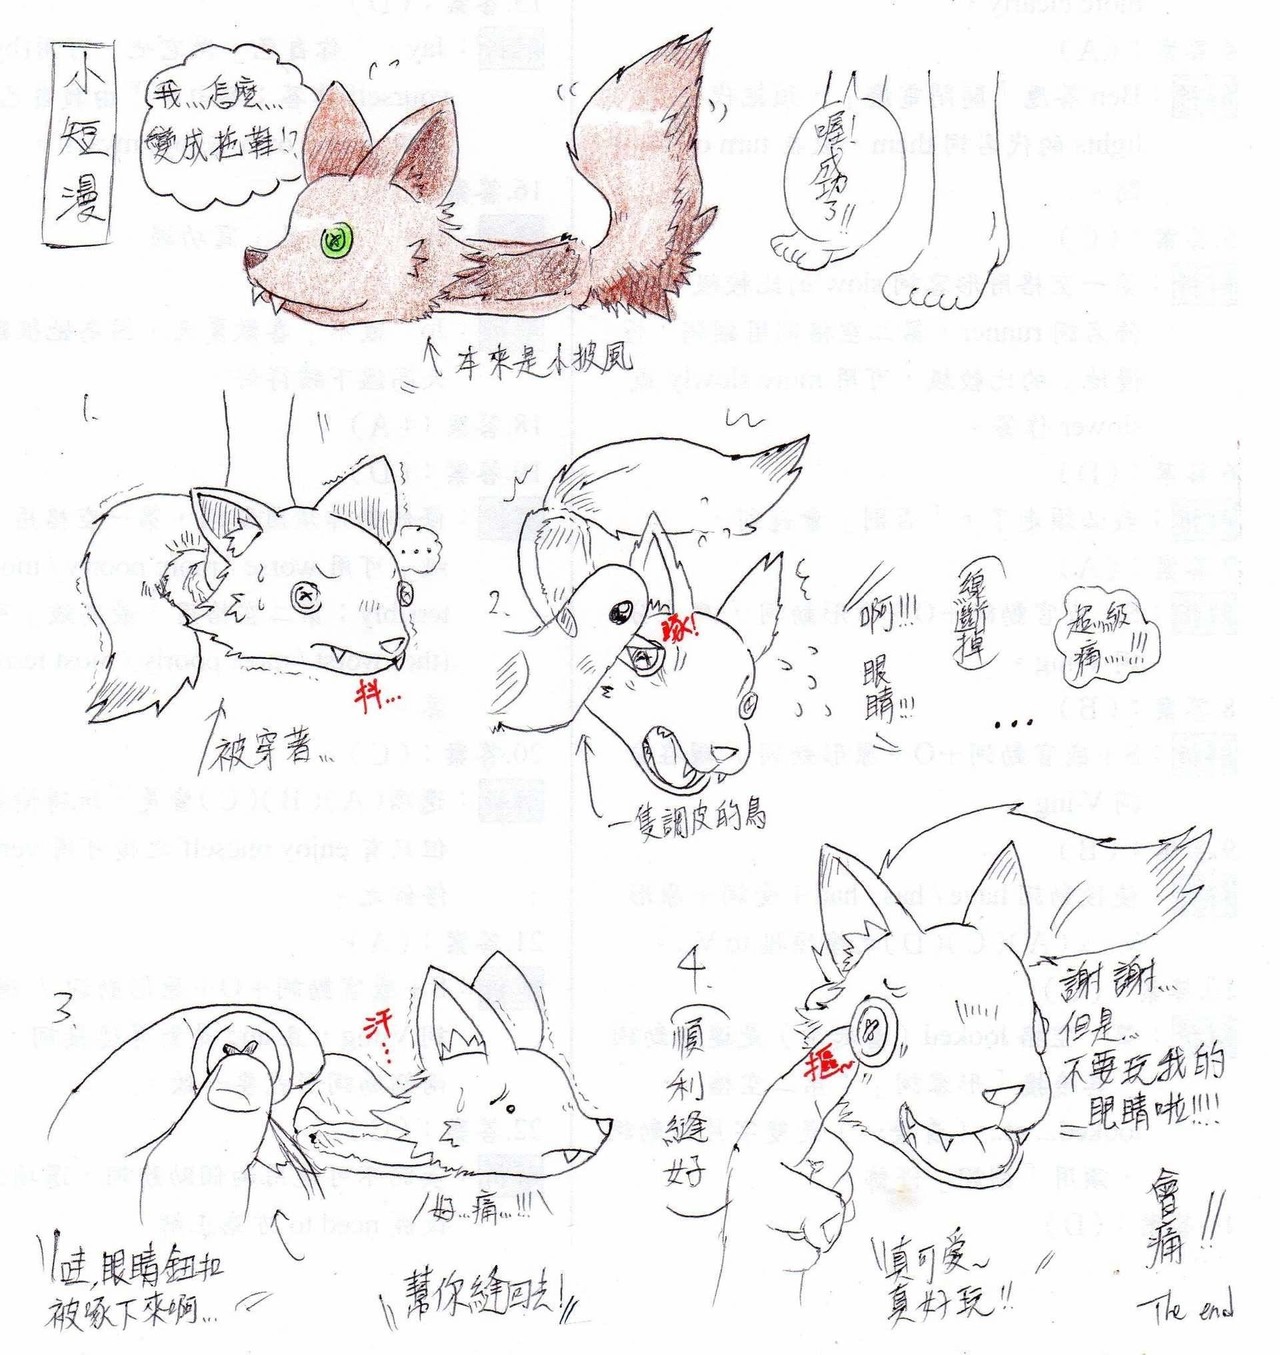 小短漫
我…怎麼…
變成拖鞋!?
喔!成功了!!
本來是小披風
1.
…
抖…
被穿著…
2.
啄!
啊!!!眼睛!!!
線斷掉
超級痛…!!!
…
一隻調皮的鳥
3
汗…
好…痛…!!!
哇,眼睛鈕扣
被啄下來啊…
幫你縫回去!
4.
順利縫好
摳~
謝謝…
但是…
不要玩我的
眼睛啦!!!!
會痛!!
真可愛~
真好玩!!
The end